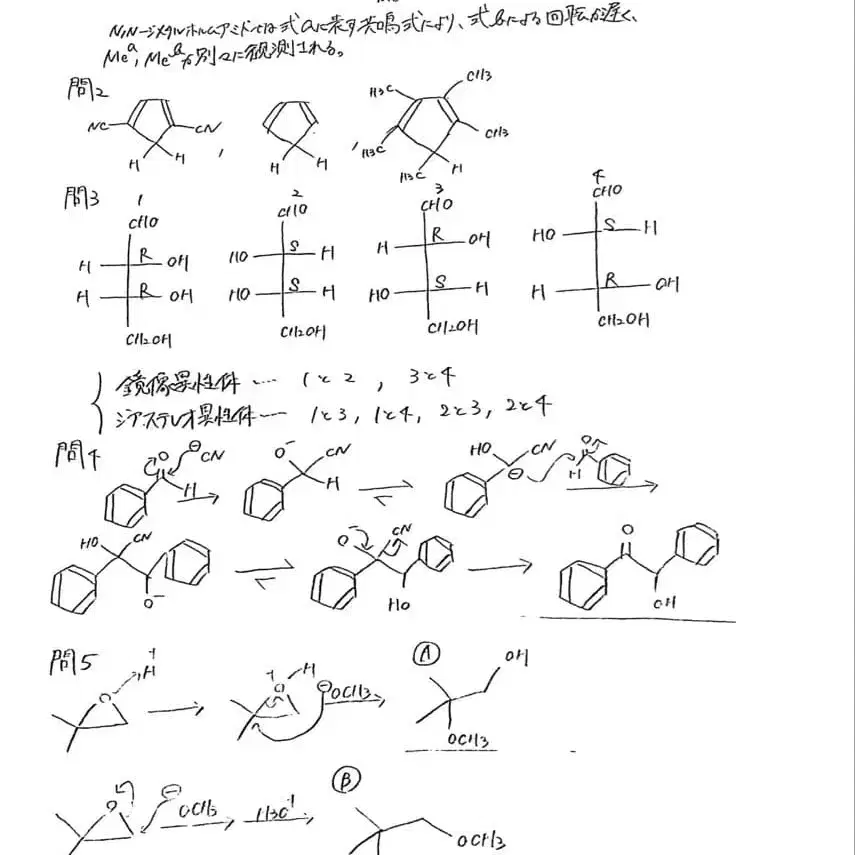 Me
N,N-ジメチルホルムアミドでは式aに表す共鳴式により、式bによる回転が遅く、
Meᵃ, Meᵇが別々に観測される。
問2
NC CN H H , H H , H3C CH3 H3C CH3 H3C H
問3
1 2 3 4
CHO CHO CHO CHO
H R OH HO S H H R OH HO S H
H R OH HO S H HO S H H R OH
CH2OH CH2OH CH2OH CH2OH
鏡像異性体… 1と2, 3と4
ジアステレオ異性体… 1と3, 1と4, 2と3, 2と4
問4
O ⊖CN H O⁻ CN H HO CN ⊖ O H
HO CN O⁻ O⁻ CN HO O OH
問5
O H⁺ O⁺ H ⊖OCH3 Ⓐ OH OCH3
O ⊖OCH3 H3O⁺ Ⓑ OCH3